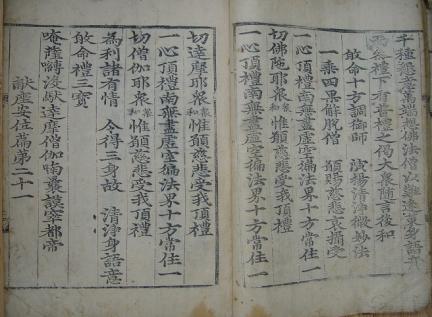 千種萬端佛法僧以難逢身語
禮下有普禮之偈大衆隨言後和
敀命十方調御師 演揚清淨微妙法
一乘四果解脫僧 願賜慈悲哀攝受
一心頂禮南無盡虛空徧法界十方常住一
切佛陀耶衆和衆惟願慈悲受我頂禮
一心頂禮南無盡虛空徧法界十方常住一
切達摩耶衆和衆惟願慈悲受我頂禮
一心頂禮南無盡虛空徧法界十方常住一
切僧伽耶衆和衆惟願慈悲受我頂禮
為利諸有情 令得三身故 清淨身語意
敀命禮三寶
唵薩嚩沒馱達摩僧伽喃曩謨窣都帝
獻座安位篇第二十一